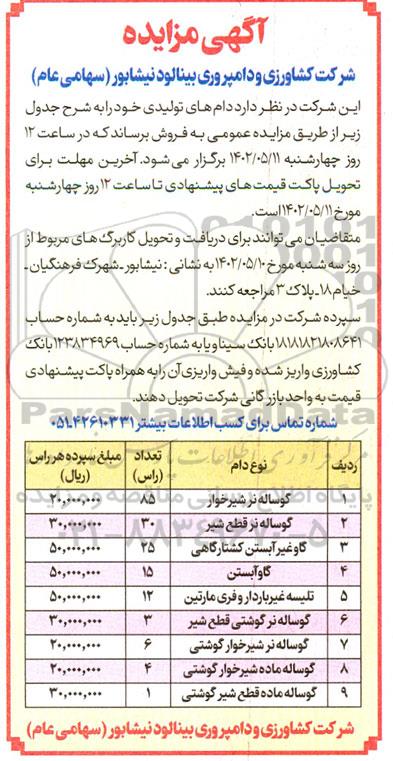 آگهی مزایده
شرکت کشاورزی و دامپروری بینالود نیشابور (سهامی عام)
این شرکت در نظر دارد دام های تولیدی خود را به شرح جدول
زیر از طریق مزایده عمومی به فروش برساند که در ساعت ۱۲
روز چهارشنبه ۱۴۰۲/۰۵/۱۱ برگزار می شود. آخرین مهلت برای
تحویل پاکت قیمت های پیشنهادی تا ساعت ۱۲ روز چهارشنبه
مورخ ۱۴۰۲/۰۵/۱۱ است.
متقاضیان می توانند برای دریافت و تحویل کاربرگ های مربوط از
روز سه شنبه مورخ ۱۴۰۲/۰۵/۱۰ به نشانی : نیشابور ـ شهرک فرهنگیان ـ
خیام ۱۸ ـ پلاک ۳ مراجعه کنند.
سپرده شرکت در مزایده طبق جدول زیر باید به شماره حساب
۱۸۱۸۱۸۲۱۸۰۸۶۴۱ بانک سینا و یا به شماره حساب ۱۲۳۸۳۴۹۶۹ بانک
کشاورزی واریز شده و فیش واریزی آن را به همراه پاکت پیشنهادی
قیمت به واحد بازرگانی شرکت تحویل دهند.
شماره تماس برای کسب اطلاعات بیشتر ۰۵۱۴۲۶۱۰۳۳۱
ردیف نوع دام تعداد (راس) مبلغ سپرده هر راس (ریال)
۱ گوساله نر شیرخوار ۸۵ ۲۰,۰۰۰,۰۰۰
۲ گوساله نر قطع شیر ۳۰ ۳۰,۰۰۰,۰۰۰
۳ گاو غیر آبستن کشتارگاهی ۲۵ ۵۰,۰۰۰,۰۰۰
۴ گاو آبستن ۱۵ ۵۰,۰۰۰,۰۰۰
۵ تلیسه غیر باردار و فری مارتین ۱۲ ۵۰,۰۰۰,۰۰۰
۶ گوساله نر گوشتی قطع شیر ۳ ۳۰,۰۰۰,۰۰۰
۷ گوساله نر شیرخوار گوشتی ۶ ۲۰,۰۰۰,۰۰۰
۸ گوساله ماده شیرخوار گوشتی ۴ ۲۰,۰۰۰,۰۰۰
۹ گوساله ماده قطع شیر گوشتی ۱ ۳۰,۰۰۰,۰۰۰
شرکت کشاورزی و دامپروری بینالود نیشابور (سهامی عام)